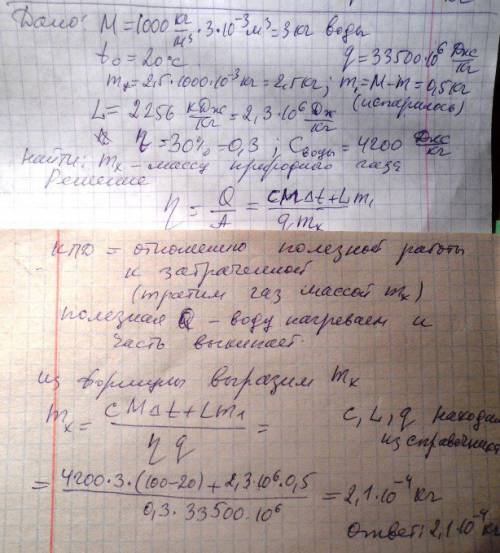 Дано: M = 1000 кг/м³ · 3·10⁻³ м³ = 3 кг воды
t₀ = 20°C q = 33500·10⁶ Дж/кг
mₓ = 2,5·1000·10⁻³ кг = 2,5 кг; m₁ = M - m = 0,5 кг
(испарилось)
L = 2256 кДж/кг = 2,3·10⁶ Дж/кг
η = 30% = 0,3 ; Cводы = 4200 Дж/кг
Найти: mₓ - массу природного газа
Решение
η = Q/A = (cMΔt + Lm₁)/(q mₓ)
КПД = отношению полезной работы
к затраченной
(тратим газ массой mₓ)
полезная Q - воду нагреваем и
часть выкипает.
из формулы выразим mₓ
mₓ = (cMΔt + Lm₁)/(η q) = c, L, q находим
из справочника
= (4200·3·(100-20) + 2,3·10⁶·0,5)/(0,3·33500·10⁶) = 2,1·10⁻⁴ кг
ответ: 2,1·10⁻⁴ кг